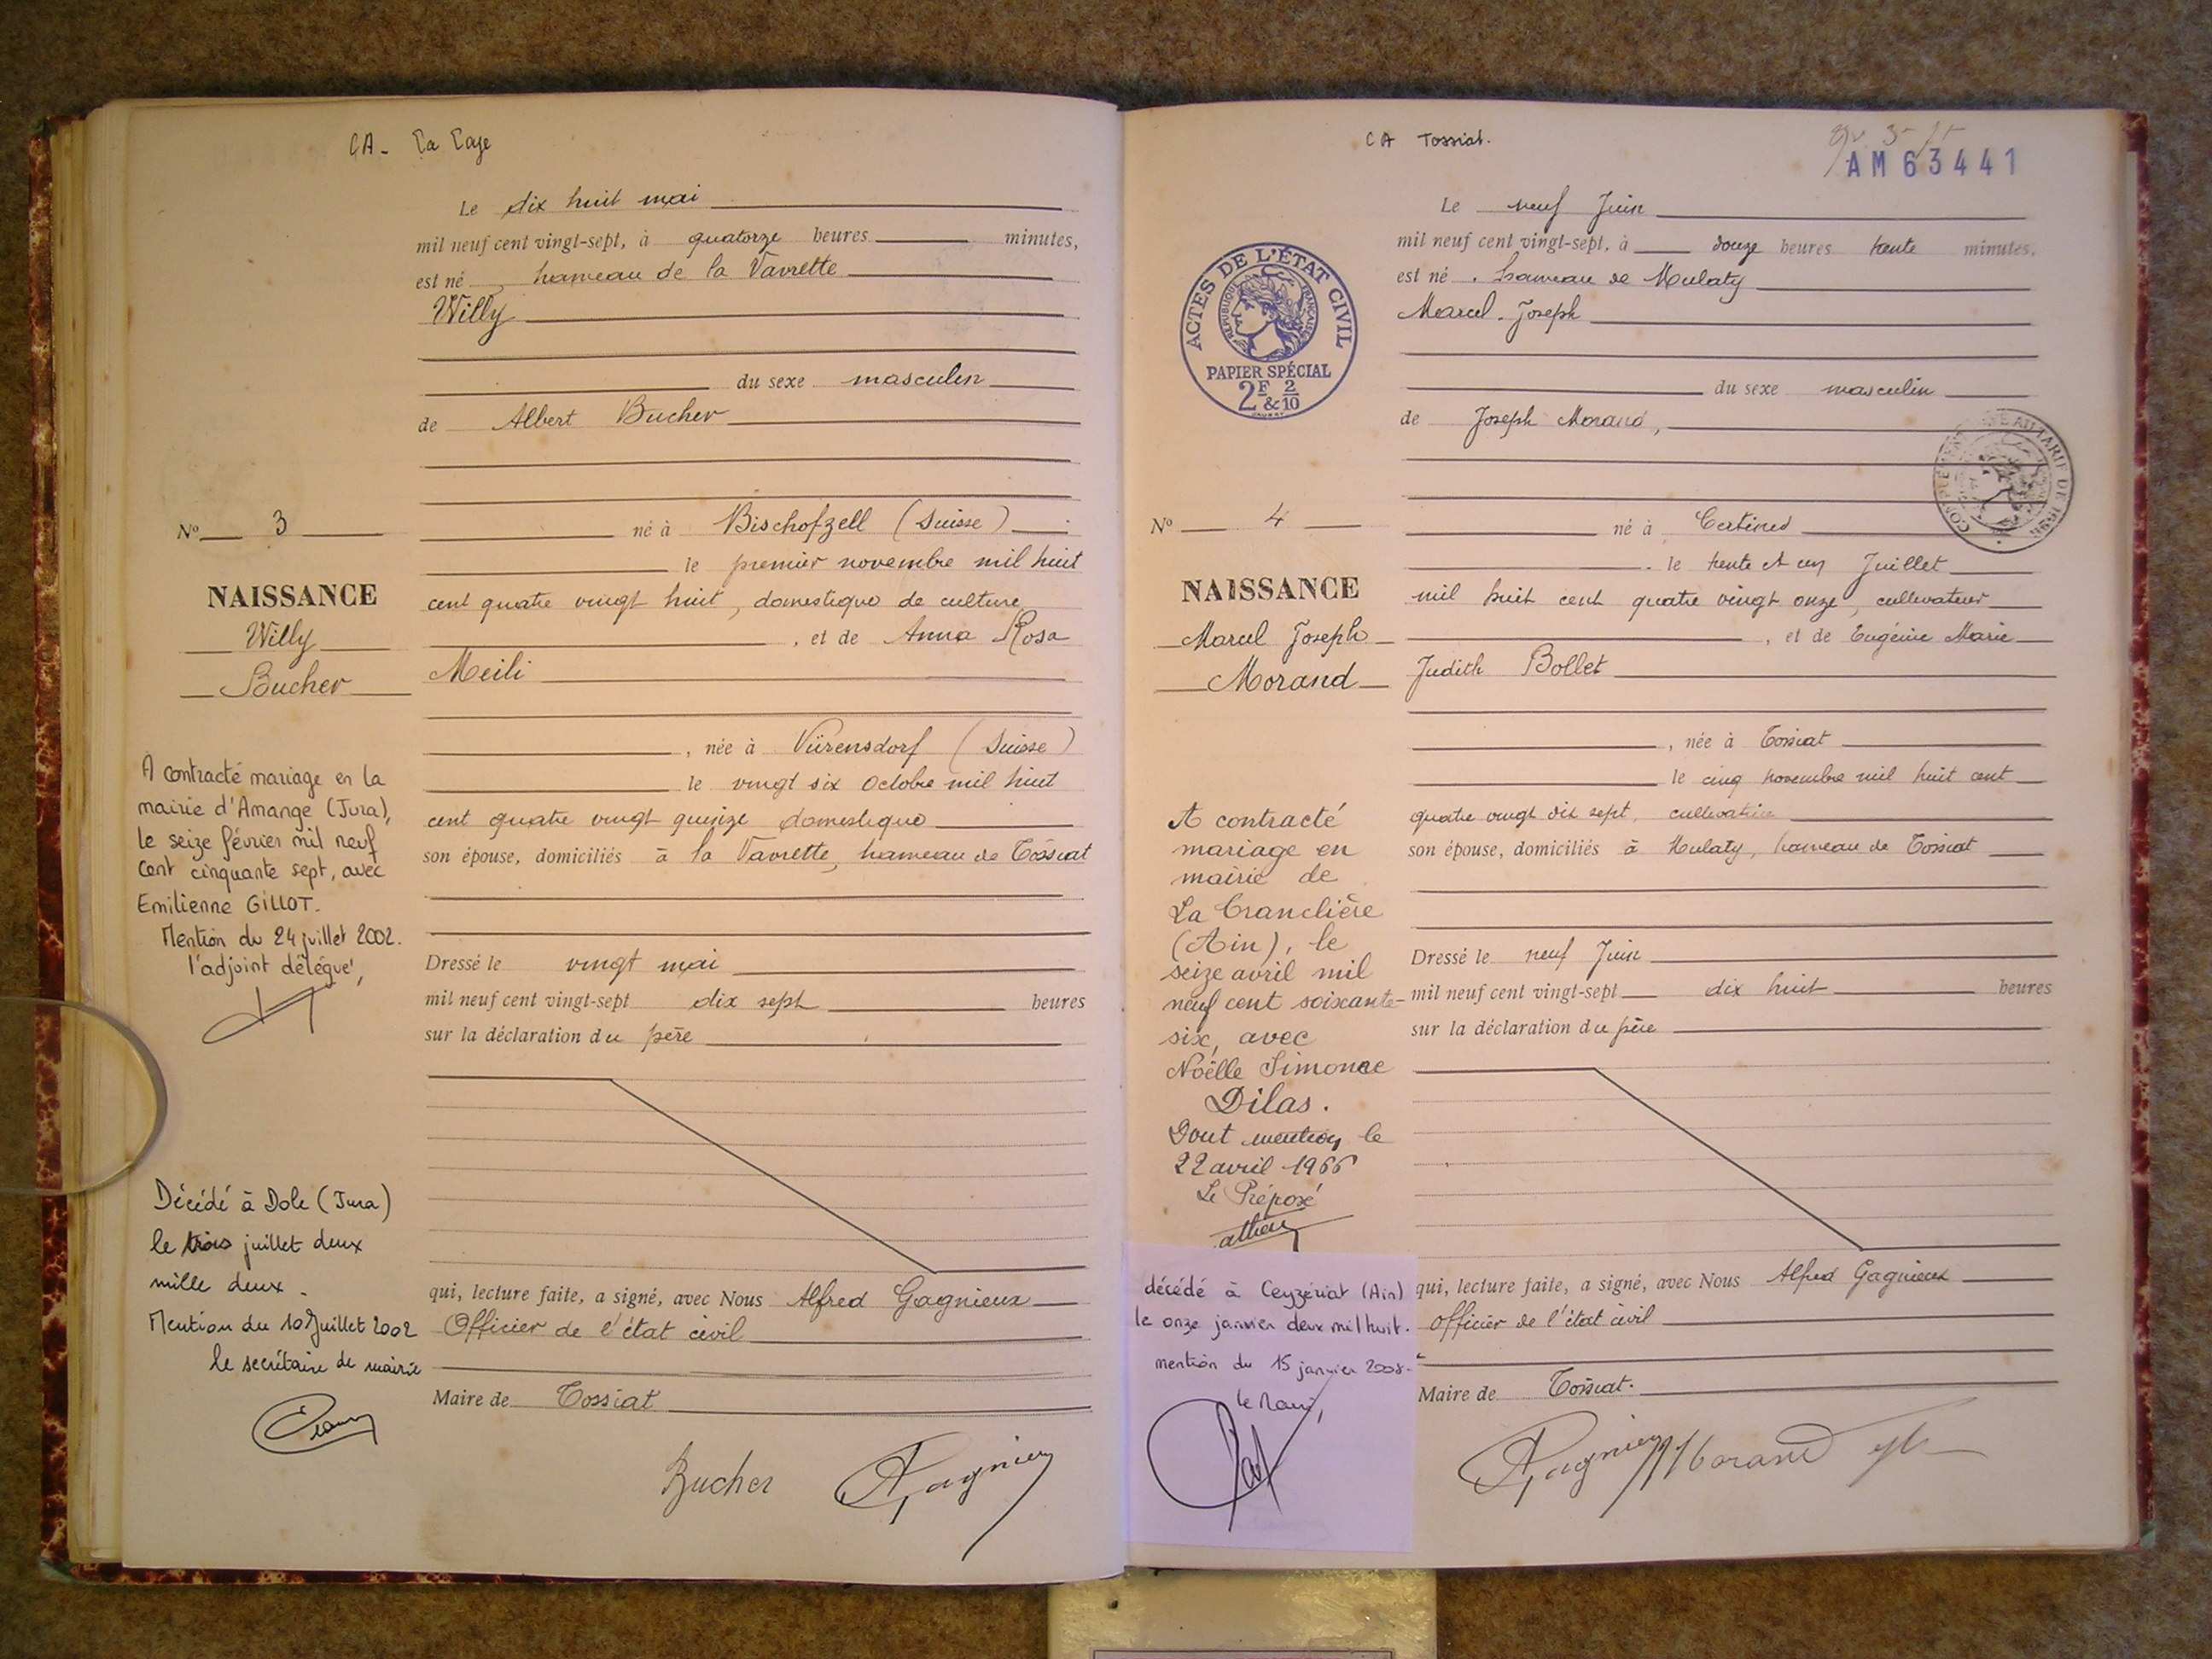 CA - La Page
Le dix huit mai
mil neuf cent vingt-sept, à quatorze heures minutes,
est né, hameau de la Vavrette
Willy
du sexe masculin
de Albert Bucher
né à Bischofzell (Suisse)
le premier novembre mil huit
cent quatre vingt huit, domestique de culture
, et de Anna Rosa
Meili
, née à Vürensdorf (Suisse)
le vingt six octobre mil huit
cent quatre vingt quinze domestique
son épouse, domiciliés à la Vavrette, hameau de Tossiat
Dressé le vingt mai
mil neuf cent vingt-sept dix sept heures
sur la déclaration du père
qui, lecture faite, a signé, avec Nous Alfred Gagnieux
Officier de l'état civil
Maire de Tossiat
Bucher A Gagnieux
No 3
NAISSANCE
Willy
Bucher
A contracté mariage en la
mairie d'Amange (Jura),
le seize février mil neuf
cent cinquante sept, avec
Emilienne GILLOT.
Mention du 24 juillet 2002.
l'adjoint délégué,
Décédé à Dole (Jura)
le trois juillet deux
mille deux.
Mention du 10 Juillet 2002
le secrétaire de mairie
CA Tossiat.
AM 63441
Le neuf Juin
mil neuf cent vingt-sept, à douze heures trente minutes,
est né, hameau de Mulaty
Marcel-Joseph
du sexe masculin
de Joseph Morand,
né à Certines
le trente et un Juillet
mil huit cent quatre vingt onze, cultivateur
, et de Eugénie Marie
Judith Bollet
, née à Tossiat
le cinq novembre mil huit cent
quatre vingt dix sept, cultivatrice
son épouse, domiciliés à Mulaty, hameau de Tossiat
Dressé le neuf Juin
mil neuf cent vingt-sept dix huit heures
sur la déclaration du père
qui, lecture faite, a signé, avec Nous Alfred Gagnieux
officier de l'état civil
Maire de Tossiat.
A Gagnieux Morand
ACTES DE L'ÉTAT CIVIL
RÉPUBLIQUE FRANÇAISE
PAPIER SPÉCIAL
2F & 2/10
No 4
NAISSANCE
Marcel Joseph
Morand
A contracté
mariage en
mairie de
La Tranclière
(Ain), le
seize avril mil
neuf cent soixante-
six, avec
Noëlle Simone
Dilas.
Dont mention le
22 avril 1966
Le Préposé
décédé à Ceyzériat (Ain)
le onze janvier deux mil huit.
mention du 15 janvier 2008.
le Maire,